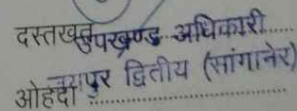 दस्तखत उपखण्ड अधिकारी
ओहदा जयपुर द्वितीय (सांगानेर)